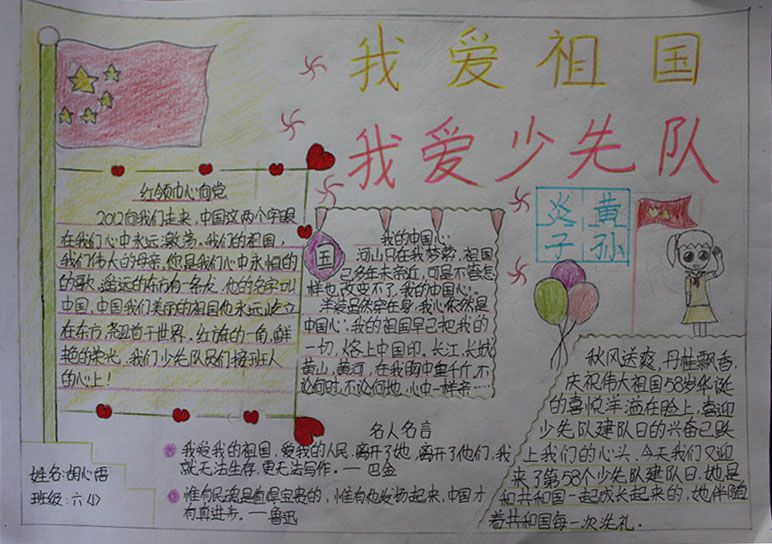 我爱祖国
我爱少先队
红领巾心向党
2012向我们走来,中国这两个字眼
在我们心中永远激荡。我们的祖国,
我们伟大的母亲,您是我们心中永恒的
的歌。遥远的东方有一条龙,他的名字叫
中国,中国我们美丽的祖国他永远屹立
在东方,翘首于世界。红旗的一角,鲜
艳的荣光,我们少先队员们接班人
的心上!
国
我的中国心
河山只在我梦萦,祖国
已多年未亲近,可是不管怎
样也改变不了,我的中国心。
洋装虽然穿在身,我心依然是
中国心:我的祖国早已把我的
一切,烙上中国印。长江,长城
黄山,黄河,在我胸中重千斤,不
论何时,不论何地,心中一样亲……
炎黄
子孙
秋风送爽,丹桂飘香,
庆祝伟大祖国58岁华诞
的喜悦洋溢在脸上,喜迎
少先队建队日的兴奋已跃
上我们的心头,今天我们又迎
来了第58个少先队建队日,她是
和共和国一起成长起来的,她伴随
着共和国每一次洗礼.
名人名言
我爱我的祖国,爱我的人民,离开了她,离开了他们,我
就无法生存,更无法写作。——巴金
惟有民魂是值得宝贵的,惟有他发扬起来,中国才
有真进步。——鲁迅
姓名:胡心语
班级:六(1)